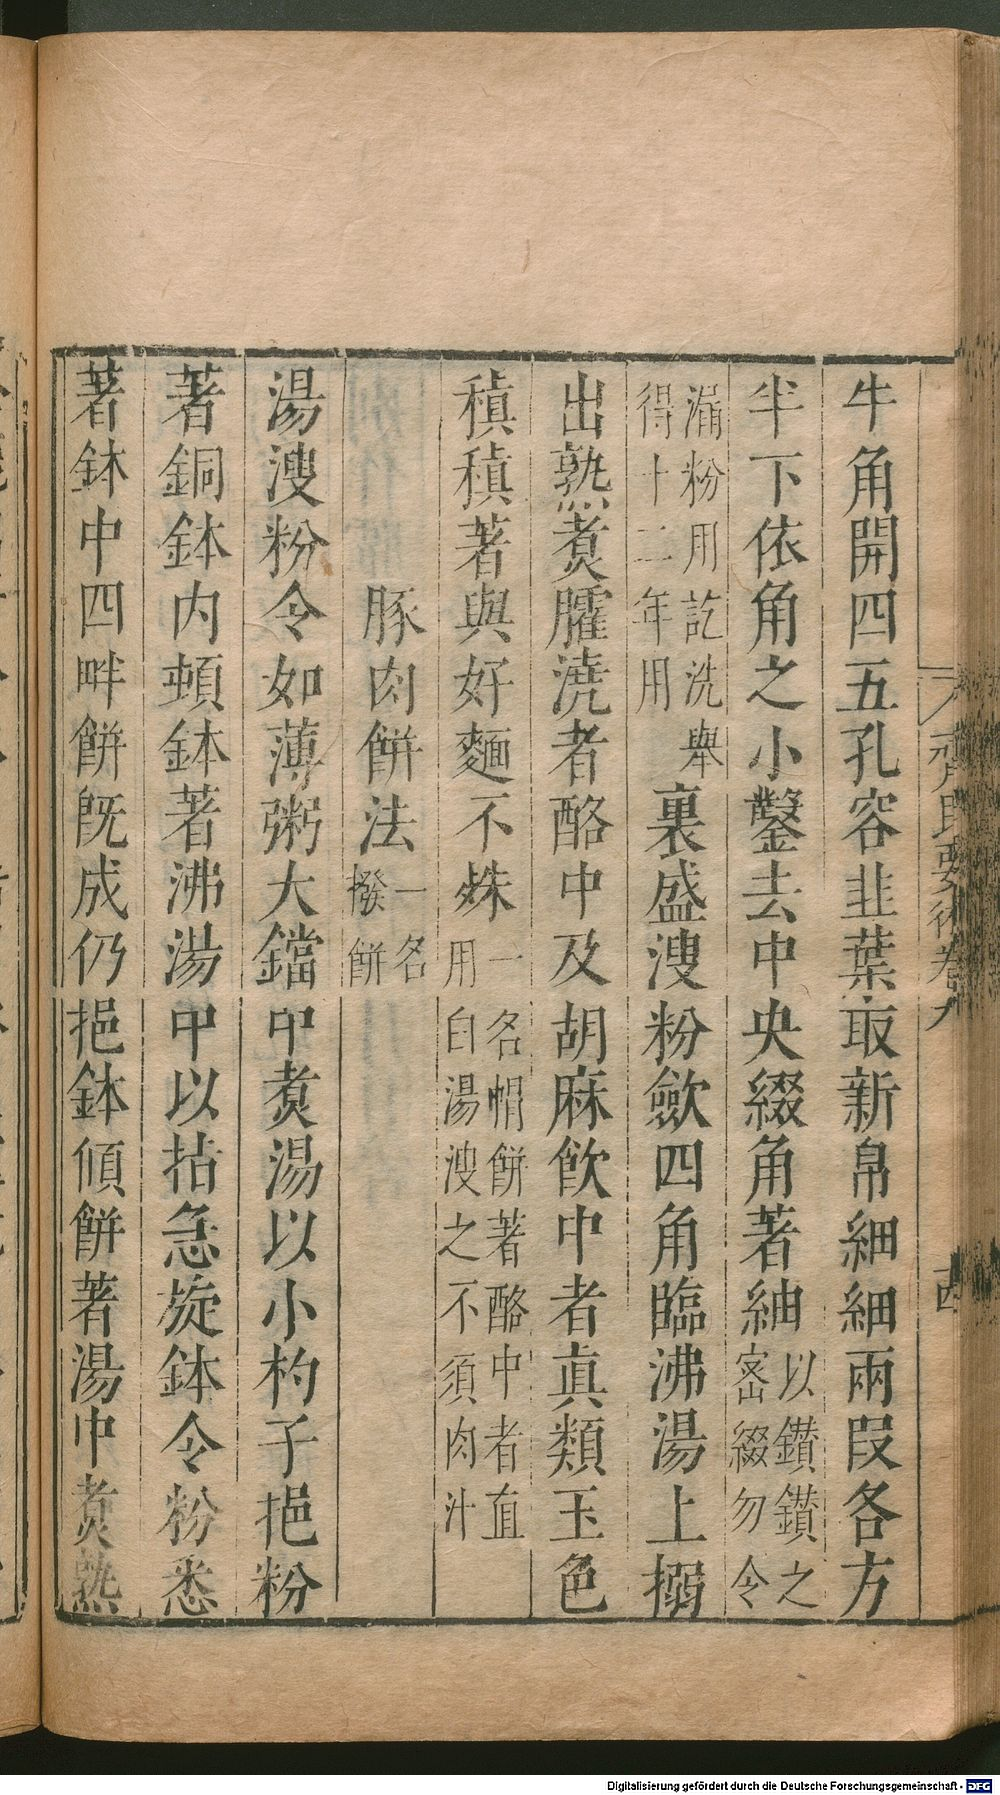 齊民要術卷九
牛角開四五孔容韭葉取新帛細細兩叚各方
半下依角之小鑿去中央綴角著紬以鑽鑽之
密綴勿令
漏粉用訖洗舉
得十二年用裏盛溲粉歛四角臨沸湯上搦
出熟煑臛澆者酪中及胡麻飲中者真類玉色
稹稹著與好麵不姝一名帽餅著酪中者直
用白湯溲之不須肉汁
豚肉餅法一名
撥餅
湯溲粉令如薄粥大鐺中煑湯以小杓子挹粉
著銅鉢内頓鉢著沸湯中以拈急旋鉢令粉悉
著鉢中四畔餅既成仍挹鉢傾餅著湯中煑熟
Digitalisierung gefördert durch die Deutsche Forschungsgemeinschaft - DFG